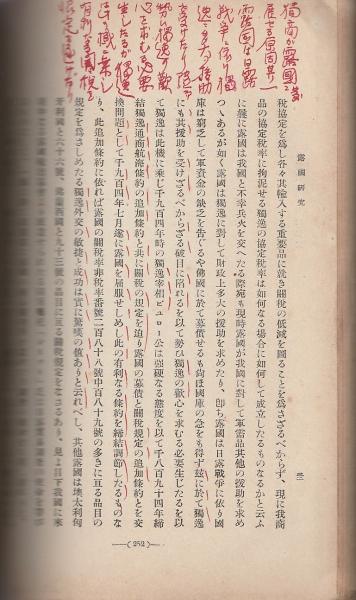 露國研究
税協定を爲し各々其輸入する重要品に就き關税の低減を圖ることを爲さざるべからず、現に我商
品の協定税率に拘泥せる獨逸の協定税率は如何なる場合に如何して成立したるものなるかと云ふ
に曩に露國は我國と不幸兵火を交へたる際宛も現時露國が我國に對して軍需品其他の援助を求め
つゝあるが如く露國は獨逸に對して財政上多大の援助を求めたり、即ち露國は日露戰爭に依り國
庫は窮乏して軍資金の缺乏を告ぐるや佛國に於て募債せるも尚ほ國庫の急をも得ず玆に於て獨逸
にも共援助を受けざるべからざる破目に陷れるを以て勢ひ獨逸の歡心を求むる必要生じたるを以
て獨逸は此機に乘じ千九百四年時の獨逸宰相ビュロー公は強硬なる態度を以て千八百九十四年締
結獨逸通商航海條約の追加條約と共に關税の規定を迫り露國の募債と關税規定の追加條約とを交
換問題として千九百四年七月遂に露國を屈服せしめ、此の有利なる條約を締結調節したるものな
り、此追加條約に依れば露國の關税率非税率番號二百八十八號中百八十九號の多きに亙る品目の
規定を爲さしめたる獨逸外交の敏捷と成功は實に驚嘆の値ありと云れべし、其他露國は墺太利匈
牙利國と六十六號、
—(252)—
獨商が露國に發
展せる原因其一
露國は日露
戰爭に依り獨
逸に多大の援助
を受けたり從て
勢ひ獨逸の歡
心を求むる必要
生じたるが獨逸
は此機に乘じて
有利な關税を